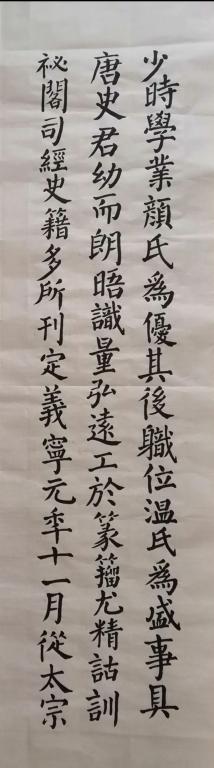 少時學業顔氏為優其後職位温氏為盛事具
唐史君幼而朗晤識量弘遠工於篆籀尤精詁訓
祕閣司經史籍多所刊定義寧元年十一月從太宗